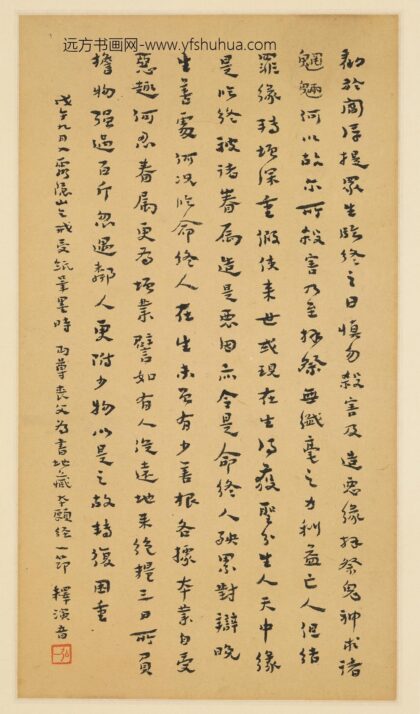 远方书画网-www.yfshuhua.com
勸於閻浮提眾生臨終之日慎勿殺害及造惡緣拜祭鬼神求諸
魍魎何以故尔所殺害乃至拜祭無纖毫之力利益亡人但結
罪緣轉增深重假使来世或現在生得獲聖分生人天中緣
是臨終被諸眷屬造是惡因亦令是命終人殃累對辯晚
生善處何況臨命終人在生未曾有少善根各據本業自受
惡趣何忍眷屬更為增業譬如有人從遠地来絕糧三日所負
擔物强過百斤忽遇鄰人更附少物以是之故轉復困重
戊午九月入靈隱山乞戒受紙筆墨時 丏尊喪父為書地藏本願經一節 釋演音